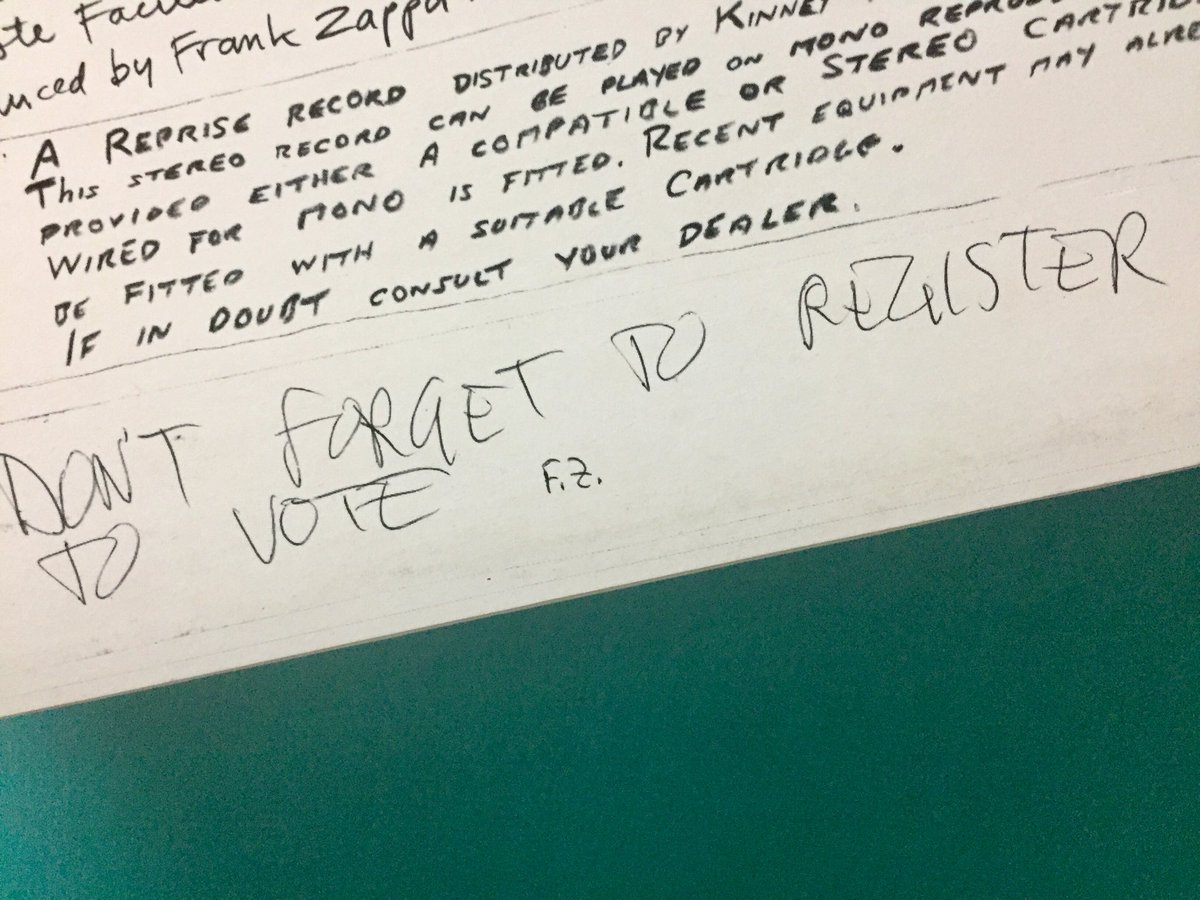 Facil
nced by Frank Zappa
A REPRISE RECORD DISTRIBUTED BY KINNEY
THIS STEREO RECORD CAN BE PLAYED ON MONO REPROD
PROVIDED EITHER A COMPATIBLE OR STEREO CARTRID
WIRED FOR MONO IS FITTED. RECENT EQUIPMENT MAY ALRE
BE FITTED WITH A SUITABLE CARTRIDGE.
IF IN DOUBT CONSULT YOUR DEALER.
DON'T FORGET TO REGISTER
TO VOTE F.Z.